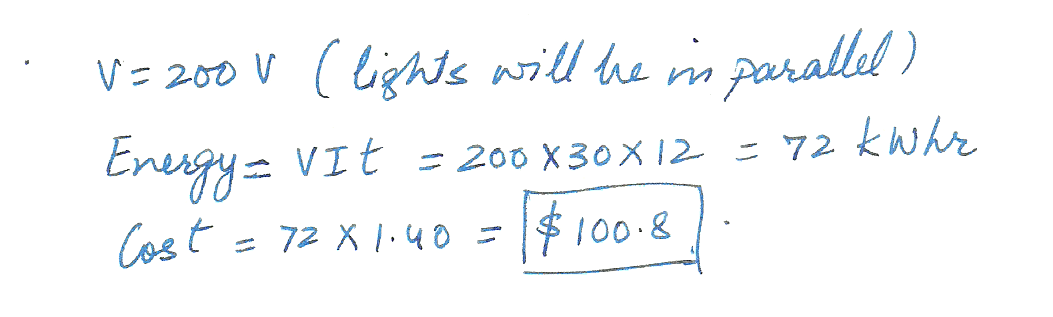 V = 200 V ( lights will be in parallel )
Energy = VIt = 200 X 30 X 12 = 72 kWhr
Cost = 72 X 1.40 = $ 100.8 .